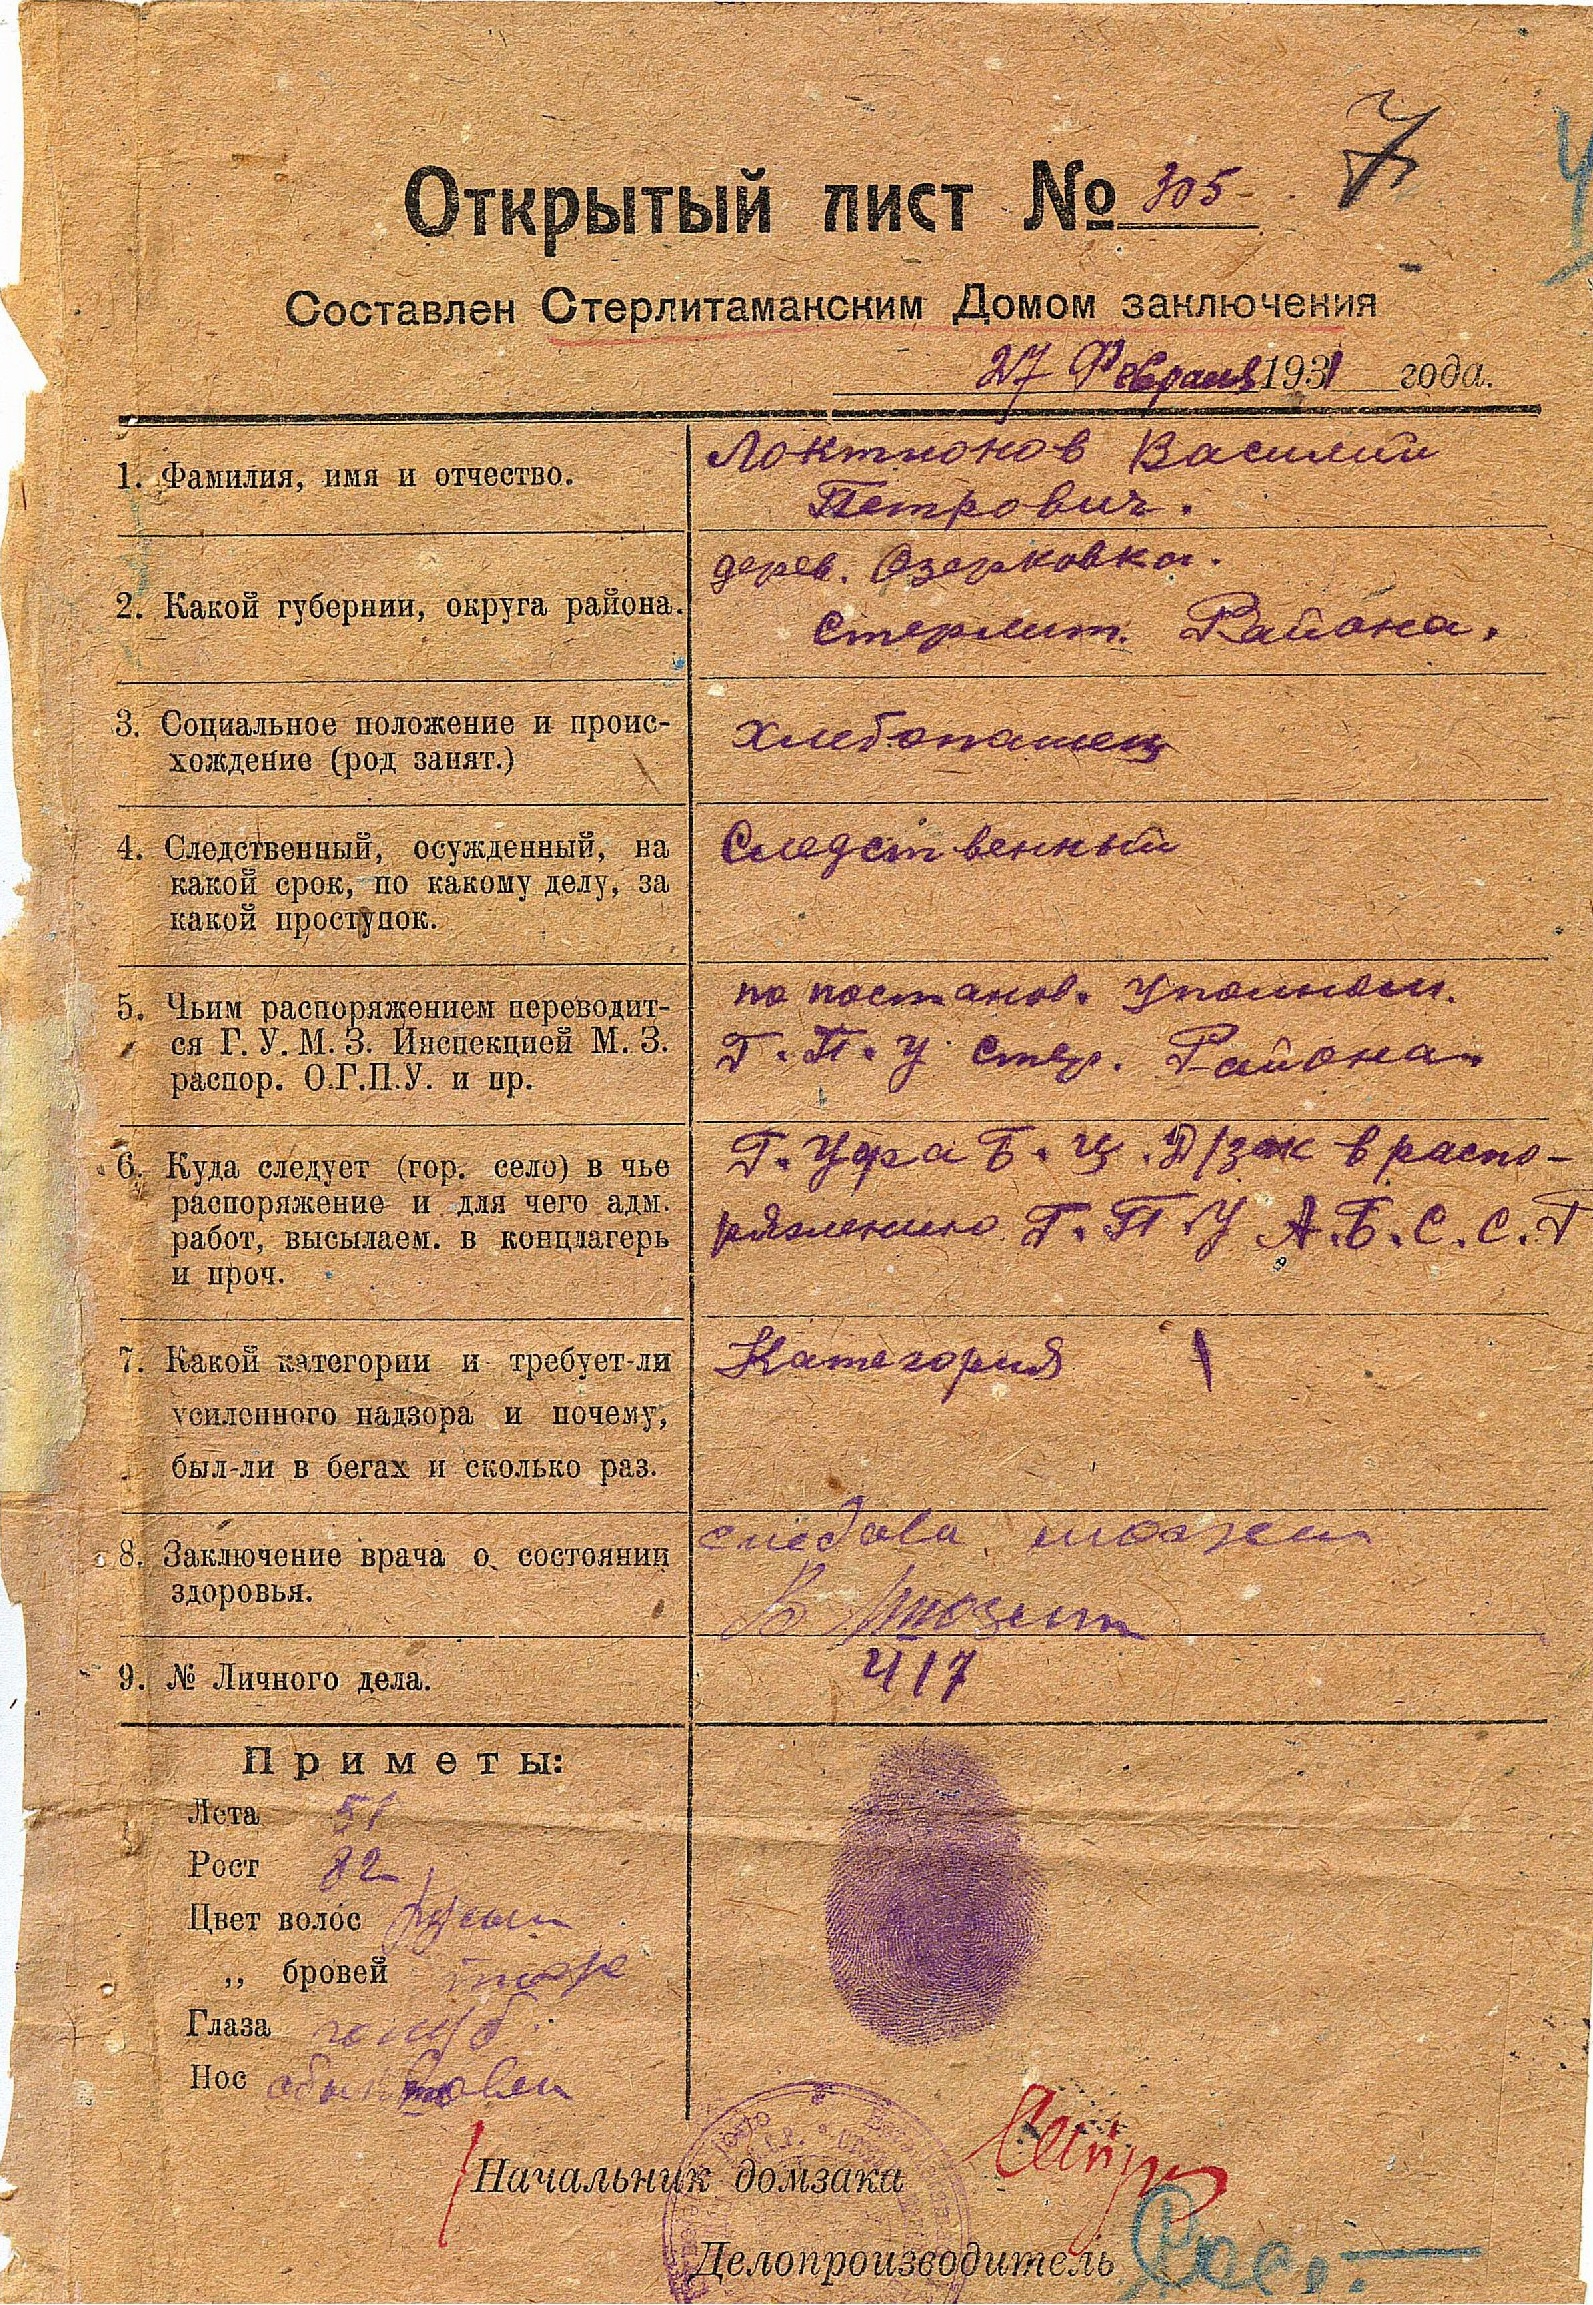 7
Открытый лист № 305-
Составлен Стерлитамакским Домом заключения
27 Февраля 1931 года.
1. Фамилия, имя и отчество.
Локтионов Василий
Петрович.
2. Какой губернии, округа района.
дерев. Озерковка.
Стерлит. Района.
3. Социальное положение и проис-
хождение (род занят.)
хлебопашец
4. Следственный, осужденный, на
какой срок, по какому делу, за
какой проступок.
Следственный
5. Чьим распоряжением переводит-
ся Г. У. М. З. Инспекцией М. З.
распор. О.Г.П.У. и пр.
по постанов. Уполном.
Г.П.У Стер. Района.
6. Куда следует (гор. село) в чье
распоряжение и для чего адм.
работ, высылаем. в концлагерь
и проч.
Г. Уфа Б.Ц. Д/зак в распо-
ряжению Г.П.У А.Б.С.С.Р
7. Какой категории и требует-ли
усиленного надзора и почему,
был-ли в бегах и сколько раз.
Категория 1
8. Заключение врача о состоянии
здоровья.
может
9. № Личного дела.
417
Приметы:
Лета 51
Рост 82
Цвет волос русый
„ бровей тоже
Глаза голуб.
Нос обыкновен
Начальник домзака
Делопроизводитель